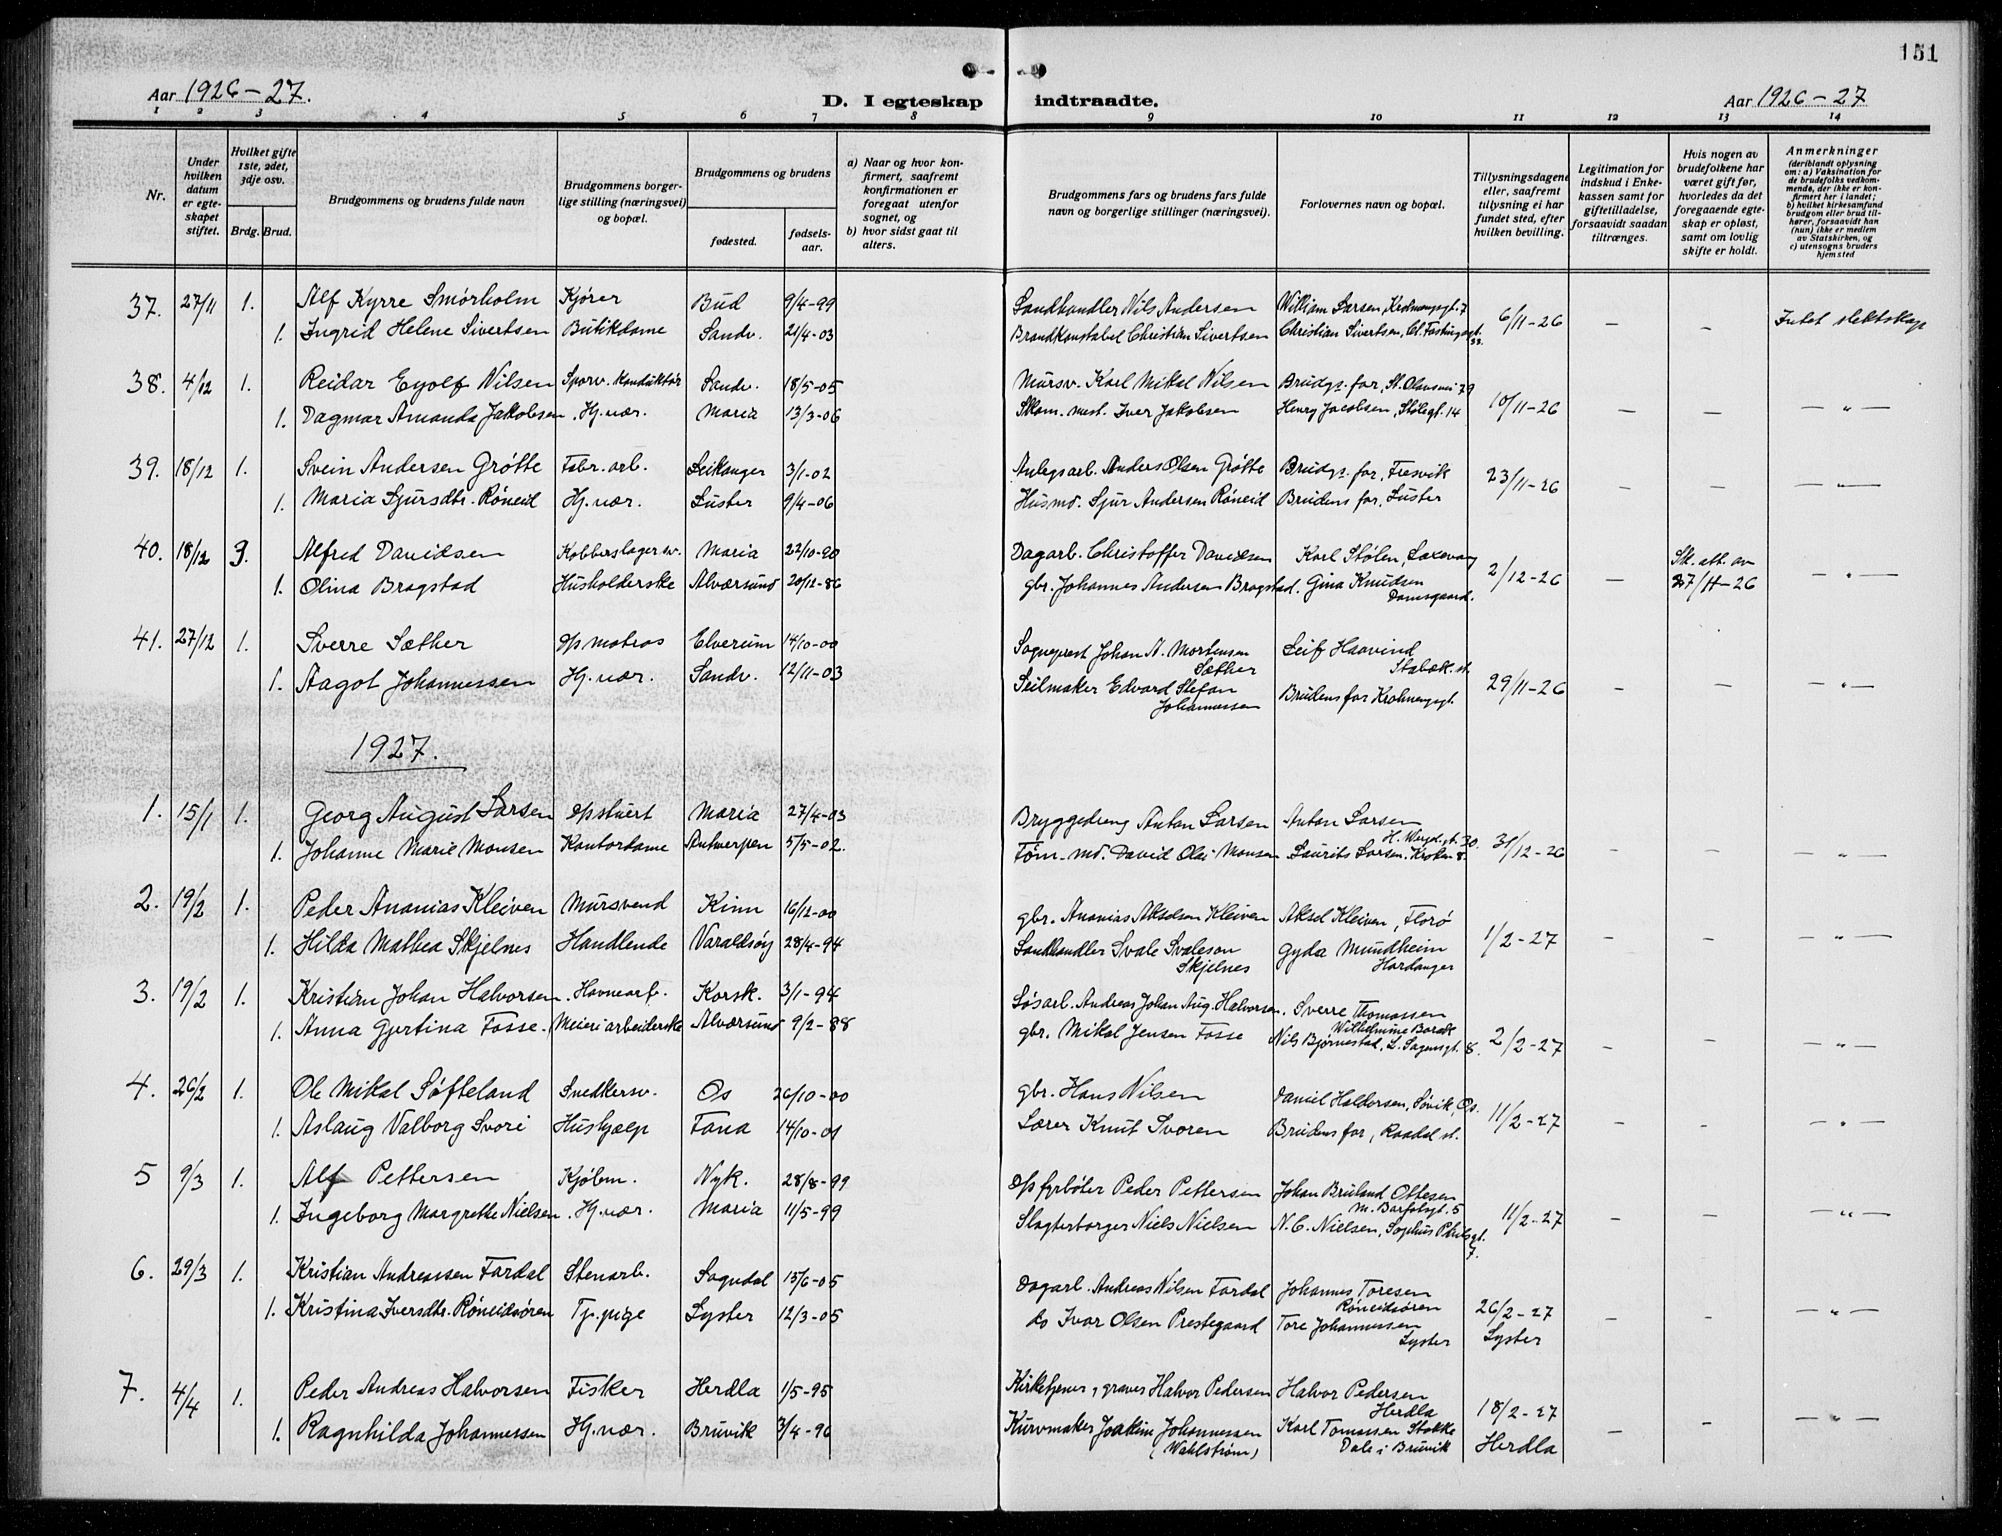 151
Aar 1926-27.
D. I egteskap indtraadte.
Aar 1926-27
1 2 3 4 5 6 7 8 9 10 11 12 13 14
Nr.
Under hvilken datum er egteskapet stiftet.
Hvilket gifte 1ste, 2det, 3dje osv.
Brdg. Brud.
Brudgommens og brudens fulde navn
Brudgommens borgerlige stilling (næringsvei) og bopæl.
Brudgommens og brudens
fødested.
fødselsaar.
a) Naar og hvor konfirmert, saafremt konfirmationen er foregaat utenfor sognet, og
b) hvor sidst gaat til alters.
Brudgommens fars og brudens fars fulde navn og borgerlige stillinger (næringsvei).
Forlovernes navn og bopæl.
Tillysningsdagene eller, saafremt tillysning ei har fundet sted, efter hvilken bevilling.
Legitimation for indskud i Enkekassen samt for giftetilladelse, forsaavidt saadan tiltrænges.
Hvis nogen av brudefolkene har været gift før, hvorledes da det foregaaende egteskap er opløst, samt om lovlig skifte er holdt.
Anmerkninger
(deriblandt oplysning om: a) Vaksination for de brudefolks vedkommende, der ikke er konfirmert her i landet; b) hvilket kirkesamfund brudgom eller brud tilhører, forsaavidt han (hun) ikke er medlem av Statskirken, og c) utensogns bruders hjemsted
37. 27/11 1. Alf Kyrre Smörholm Kjører Bud 9/4-99 Sandhandler Nils Andersen William Larsen, Krohnengt. 7 6/11-26 — — Intet slektskap
1. Ingrid Helene Sivertsen Butikdame Sandv. 21/4-03 Brandkonstabel Christian Sivertsen Christian Sivertsen, Cl. Fastingsgt. 33.
38. 4/12 1. Reidar Eyolf Nilsen Sporv. konduktör Sandv. 18/5-05 Mursv. Karl Mikal Nilsen Brudgs. far, St. Olavsvei 79 10/11-26 — — — " —
1. Dagmar Amanda Jakobsen. Hj. vær. Maria 13/3-06 Skom. mest. Iver Jakobsen Henry Jacobsen, Stølegt. 14
39. 18/12 1. Svein Andersen Grötte Fabr. arb. Leikanger 3/1-02 Anlegsarb. Anders Olsen Grötte Brudgs. far, Fresvik 23/11-26 — — — " —
1. Maria Sjursdtr. Röneid Hj. vær. Luster 9/4-06 Husmd. Sjur Andersen Röneid Brudens far, Luster
40. 18/12 3. Alfred Davidsen Kobberslagersv. Maria 22/10-90 Dagarb. Christoffer Davidsen Karl Stølen, Laxevaag 2/12-26 — Sk. att. av 27/11-26 — " —
1. Olina Bragstad Husholderske Alværsund 20/12-86 gbr. Johannes Andersen Bragstad. Gina Knudsen Damsgaard.
41. 27/12 1. Sverre Sæther dp matros Elverum 14/10-00 Sogneprest Johan A. Mortensen Sæther Leif Haavind Stabæk st. 29/11-26 — — — " —
1. Aagot Johannessen Hj. vær. Sandv. 12/11-03 Seilmaker Edvard Stefan Johannessen Brudens far Krohnengt.
1927.
1. 15/1 1. Georg August Larsen dp stuert Maria 27/4-03 Bryggedreng Anton Larsen Anton Larsen H. Wergl. gt. 30. 31/12-26 — — — " —
1. Johanne Marie Monsen Kontordame Antwerpen 5/5-02. Tøm. md. David Olai Monsen Laurits Larsen, Kroken 8.
2. 19/2 1. Peder Ananias Kleiven Mursvend Kinn 16/12-00 gbr. Ananias Akselsen Kleiven Aksel Kleiven, Florö 1/2-27 — — — " —
1. Hilda Mathea Skjelnes Handlende Varaldsöy 28/4-94 Sandhandler Svale Svaleson Skjelnes Gyda Mundheim Hardanger
3. 19/2 1. Kristian Johan Halvorsen. Havnearb. Korsk. 3/1-94 Løsarb. Andreas Johan Aug. Halvorsen. Sverre Thomassen Wilhelmine Borak 2/2-27 — — — " —
1. Anna Gjertina Fosse. Meieriarbeiderske Alværsund 9/2-88 gbr. Mikal Jensen Fosse Nils Bjørnestad, L. Sagensgt. 8.
4. 26/2 1. Ole Mikal Söfteland Snedkersv. Os 26/10-00 gbr. Hans Nilsen Daniel Haldorsen, Søvik, Os. 11/2-27 — — — " —
1. Aslaug Valborg Svori Hushjælp Fana 14/10-01 Lærer Knut Svoren Brudens far, Raadal st.
5 9/3 1. Alf Pettersen Kjøbm. Nyk. 28/8-99 dp fyrbøter Peder Pettersen Johan Bruland Ottesen M. Barfotsgt. 5 11/2-27 — — — " —
1. Ingeborg Margrethe Nielsen. Hj. vær. Maria 11/5-99 Slagterborger Niels Nielsen N. C. Nielsen, Sophus Pihlsgt. 7.
6. 29/3 1. Kristian Andreassen Fardal Stenarb. Sogndal 15/6-05 Dagarb. Andreas Nilsen Fardal Johannes Toresen Röneidsören 26/2-27 Lyster — — — " —
1. Kristina Iversdtr. Röneidsören Tj. pige Lyster 12/3-05 do Ivar Olsen Prestegaard Tore Johannessen Lyster
7. 4/4 1. Peder Andreas Halvorsen Fisker Herdla 1/5-95 Kirketjener, graver Halvor Pedersen Halvor Pedersen Herdla 18/2-27 Herdla — — — " —
1. Ragnhilda Johannessen Hj. vær. Bruvik 3/4-96 Kurvmaker Joakim Johannessen (Wahlstrøm) Karl Tomassen Stokke Dale i Bruvik